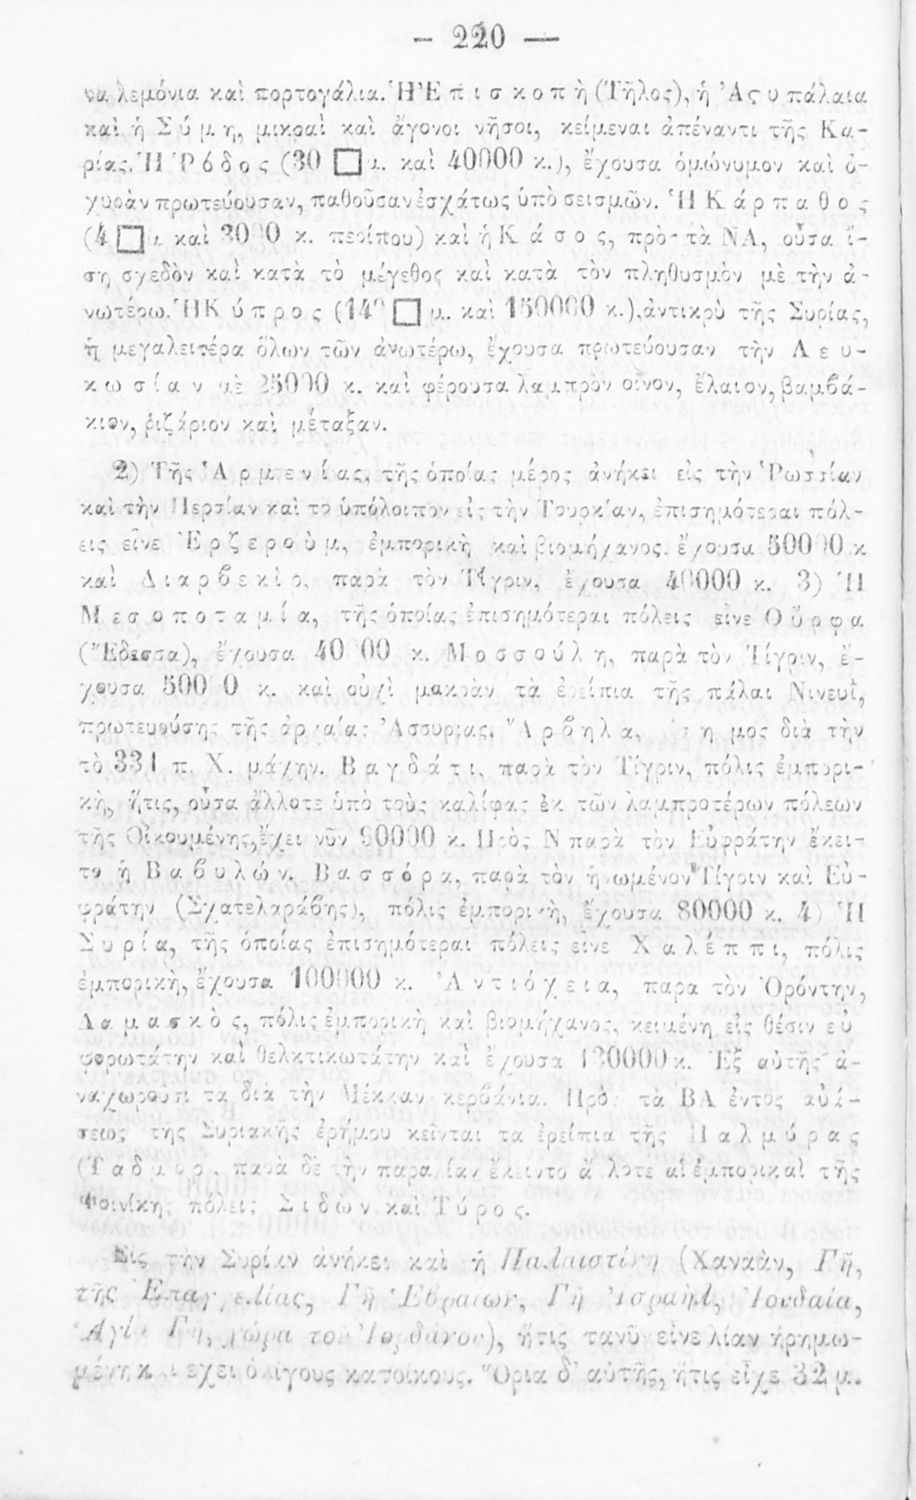 — 220 —
να λεμόνια καὶ πορτογάλια. Ἡ Ἐπισκοπὴ (Τῆλος), ἡ Ἀςυπάλαια
καὶ ἡ Σύμη, μικραὶ καὶ ἄγονοι νῆσοι, κείμεναι ἀπέναντι τῆς Κα-
ρίας. Ἡ Ῥόδος (30 □ μ. καὶ 40000 κ.), ἔχουσα ὁμώνυμον καὶ ὀ-
χυρὰν πρωτεύουσαν, παθοῦσαν ἐσχάτως ὑπὸ σεισμῶν. Ἡ Κάρπαθος
(4 □ μ. καὶ κ. περίπου) καὶ ἡ Κάσος, πρὸς τὰ ΝΑ, οὖσα ἴ-
ση σχεδὸν καὶ κατὰ τὸ μέγεθος καὶ κατὰ τὸν πληθυσμὸν μὲ τὴν ἀ-
νωτέρω. Ἡ Κύπρος ( □ μ. καὶ 150000 κ.), ἀντικρὺ τῆς Συρίας,
ἡ μεγαλειτέρα ὅλων τῶν ἀνωτέρω, ἔχουσα πρωτεύουσαν τὴν Λευ-
κωσίαν μὲ 25000 κ. καὶ φέρουσα λαμπρὸν οἶνον, ἔλαιον, βαμβά-
κιον, ῥιζάριον καὶ μέταξαν.
2) Τῆς Ἀρμενίας, τῆς ὁποίας μέρος ἀνήκει εἰς τὴν Ῥωσσίαν
καὶ τὴν Περσίαν καὶ τὸ ὑπόλοιπον εἰς τὴν Τουρκίαν, ἐπισημότεραι πόλ-
εις εἶνε Ἐρζεροὺμ, ἐμπορικὴ καὶ βιομήχανος, ἔχουσα 50000 κ
καὶ Διαρβεκὶρ, παρὰ τὸν Τίγριν, ἔχουσα 40000 κ. 3) Ἡ
Μεσοποταμία, τῆς ὁποίας ἐπισημότεραι πόλεις εἶνε Οὔρφα
(Ἔδεσσα), ἔχουσα 40000 κ. Μοσσούλη, παρὰ τὸν Τίγριν, ἔ-
χουσα 50000 κ. καὶ οὐχὶ μακρὰν τὰ ἐρείπια τῆς πάλαι Νινευῒ,
πρωτευούσης τῆς ἀρχαίας Ἀσσυρίας. Ἄρβηλα, διὰ τὴν
τὸ 331 π. Χ. μάχην. Βαγδάτι, παρὰ τὸν Τίγριν, πόλις ἐμπορι-
κὴ, ἥτις, οὖσα ἄλλοτε ὑπὸ τοὺς καλίφας ἐκ τῶν λαμπροτέρων πόλεων
τῆς Οἰκουμένης, ἔχει νῦν 90000 κ. Πρὸς Ν παρὰ τὸν Εὐφράτην ἔκει-
το ἡ Βαβυλών. Βασσόρα, παρὰ τὸν ἡνωμένον Τίγριν καὶ Εὐ-
φράτην (Σχατελαράβης), πόλις ἐμπορικὴ, ἔχουσα 80000 κ. 4) Ἡ
Συρία, τῆς ὁποίας ἐπισημότεραι πόλεις εἶνε Χαλέππι, πόλις
ἐμπορικὴ, ἔχουσα 100000 κ. Ἀντιόχεια, παρὰ τὸν Ὀρόντην,
Δαμασκὸς, πόλις ἐμπορικὴ καὶ βιομήχανος, κειμένη εἰς θέσιν εὐ
φορωτάτην καὶ θελκτικωτάτην καὶ ἔχουσα κ. Ἐξ αὐτῆς ἀ-
ναχωροῦσι τὰ διὰ τὴν Μέκκαν κερβάνια. Πρὸς τὰ ΒΑ ἐντὸς αὐά-
σεως τῆς Συριακῆς ἐρήμου κεῖνται τὰ ἐρείπια τῆς Παλμύρας
παρὰ δὲ τὴν παραλίαν ἔκειντο ἄλλοτε αἱ ἐμπορικαὶ τῆς
Φοινίκης πόλεις Σιδὼν καὶ Τύρος.
Εἰς τὴν Συρίαν ἀνήκει καὶ ἡ Παλαιστίνη (Χαναὰν, Γῆ,
τῆς Ἐπαγγελίας, Γῆ Ἑβραίων, Γῆ Ἰσραὴλ, Ἰουδαία,
Ἁγία Γῆ, χώρα τοῦ Ἰορδάνου), ἥτις τανῦν εἶνε λίαν ἠρημω-
μένη καὶ ἔχει ὀλίγους κατοίκους. Ὅρια δ' αὐτῆς, ἥτις εἶχε 32 μ.